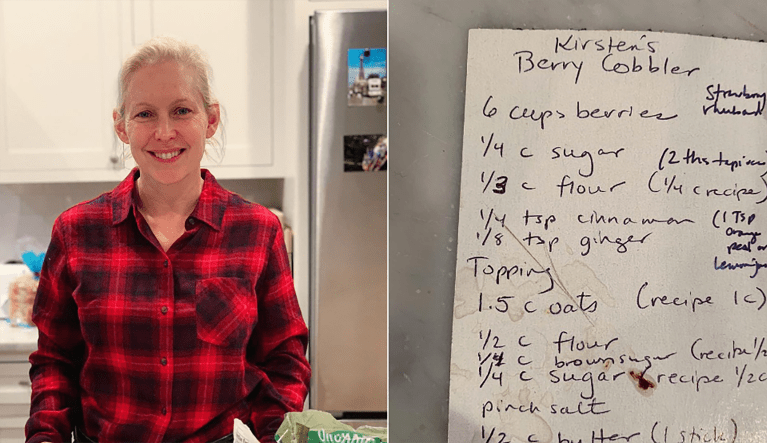 Kirsten's
Berry Cobbler
6 cups berries Strawberry rhubarb
1/4 c sugar (2 tbs
1/3 c flour (1/4 c recipe)
1/4 tsp cinnamon (1 Tsp
orange
peel or
1/8 tsp ginger
Topping
1.5 c oats (recipe 1c)
1/2 c flour
1/4 c brown sugar (recipe 1/2
1/4 c sugar recipe 1/2 c
pinch salt
1/2 c butter (1 stick)